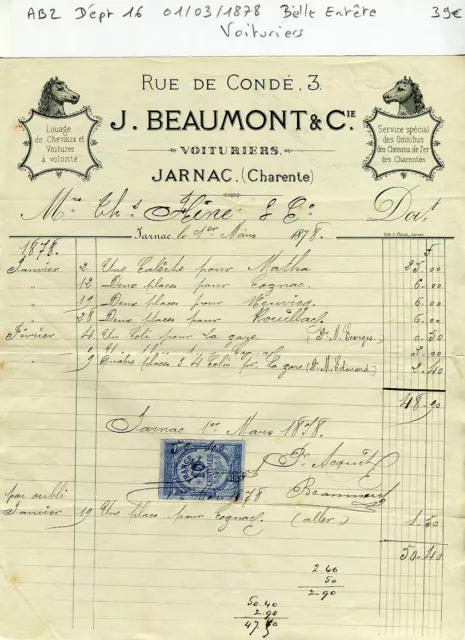 AB2 Dépt 16 01/03/1878 Belle Entête 39€
Voituriers
RUE DE CONDÉ, 3.
J. BEAUMONT & CIE
VOITURIERS.
JARNAC. (Charente)
Louage
de Chevaux et
Voitures
à volonté
Service spécial
des Omnibus
des Chemins de Fer
des Charentes
Mrs Ths Hine & Co Doit
Jarnac, le 1er Mars 1878.
1878. F
Janvier 2 Une Calèche pour Matha 25.00
" 12 Deux places pour Cognac. 6.00
" 19 Deux places pour Neuvicq. 6.00
" 28 Deux places pour Rouillac. 6.00
Février 4 Un Coli pour la gare (Dr M. Georges.) 0.50
3.00
" 9 Quatre places & 4 Colis pr la gare (Dr M. Edouard) 2.40
48.90
Jarnac 1er Mars 1878.
Pr Acquit
Beaumont
FRANCE
10
1878
par oubli
Janvier 19 Une place pour Cognac (aller) 1.50
50.40
2.40
50
2.90
50.40
2.90
47.50